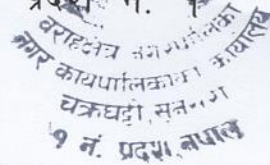 प्रदेश नं. १
वराहक्षेत्र नगरपालिका
नगर कार्यपालिकाको कार्यालय
चक्रघट्टी, सुनसरी
१ नं. प्रदेश, नेपाल